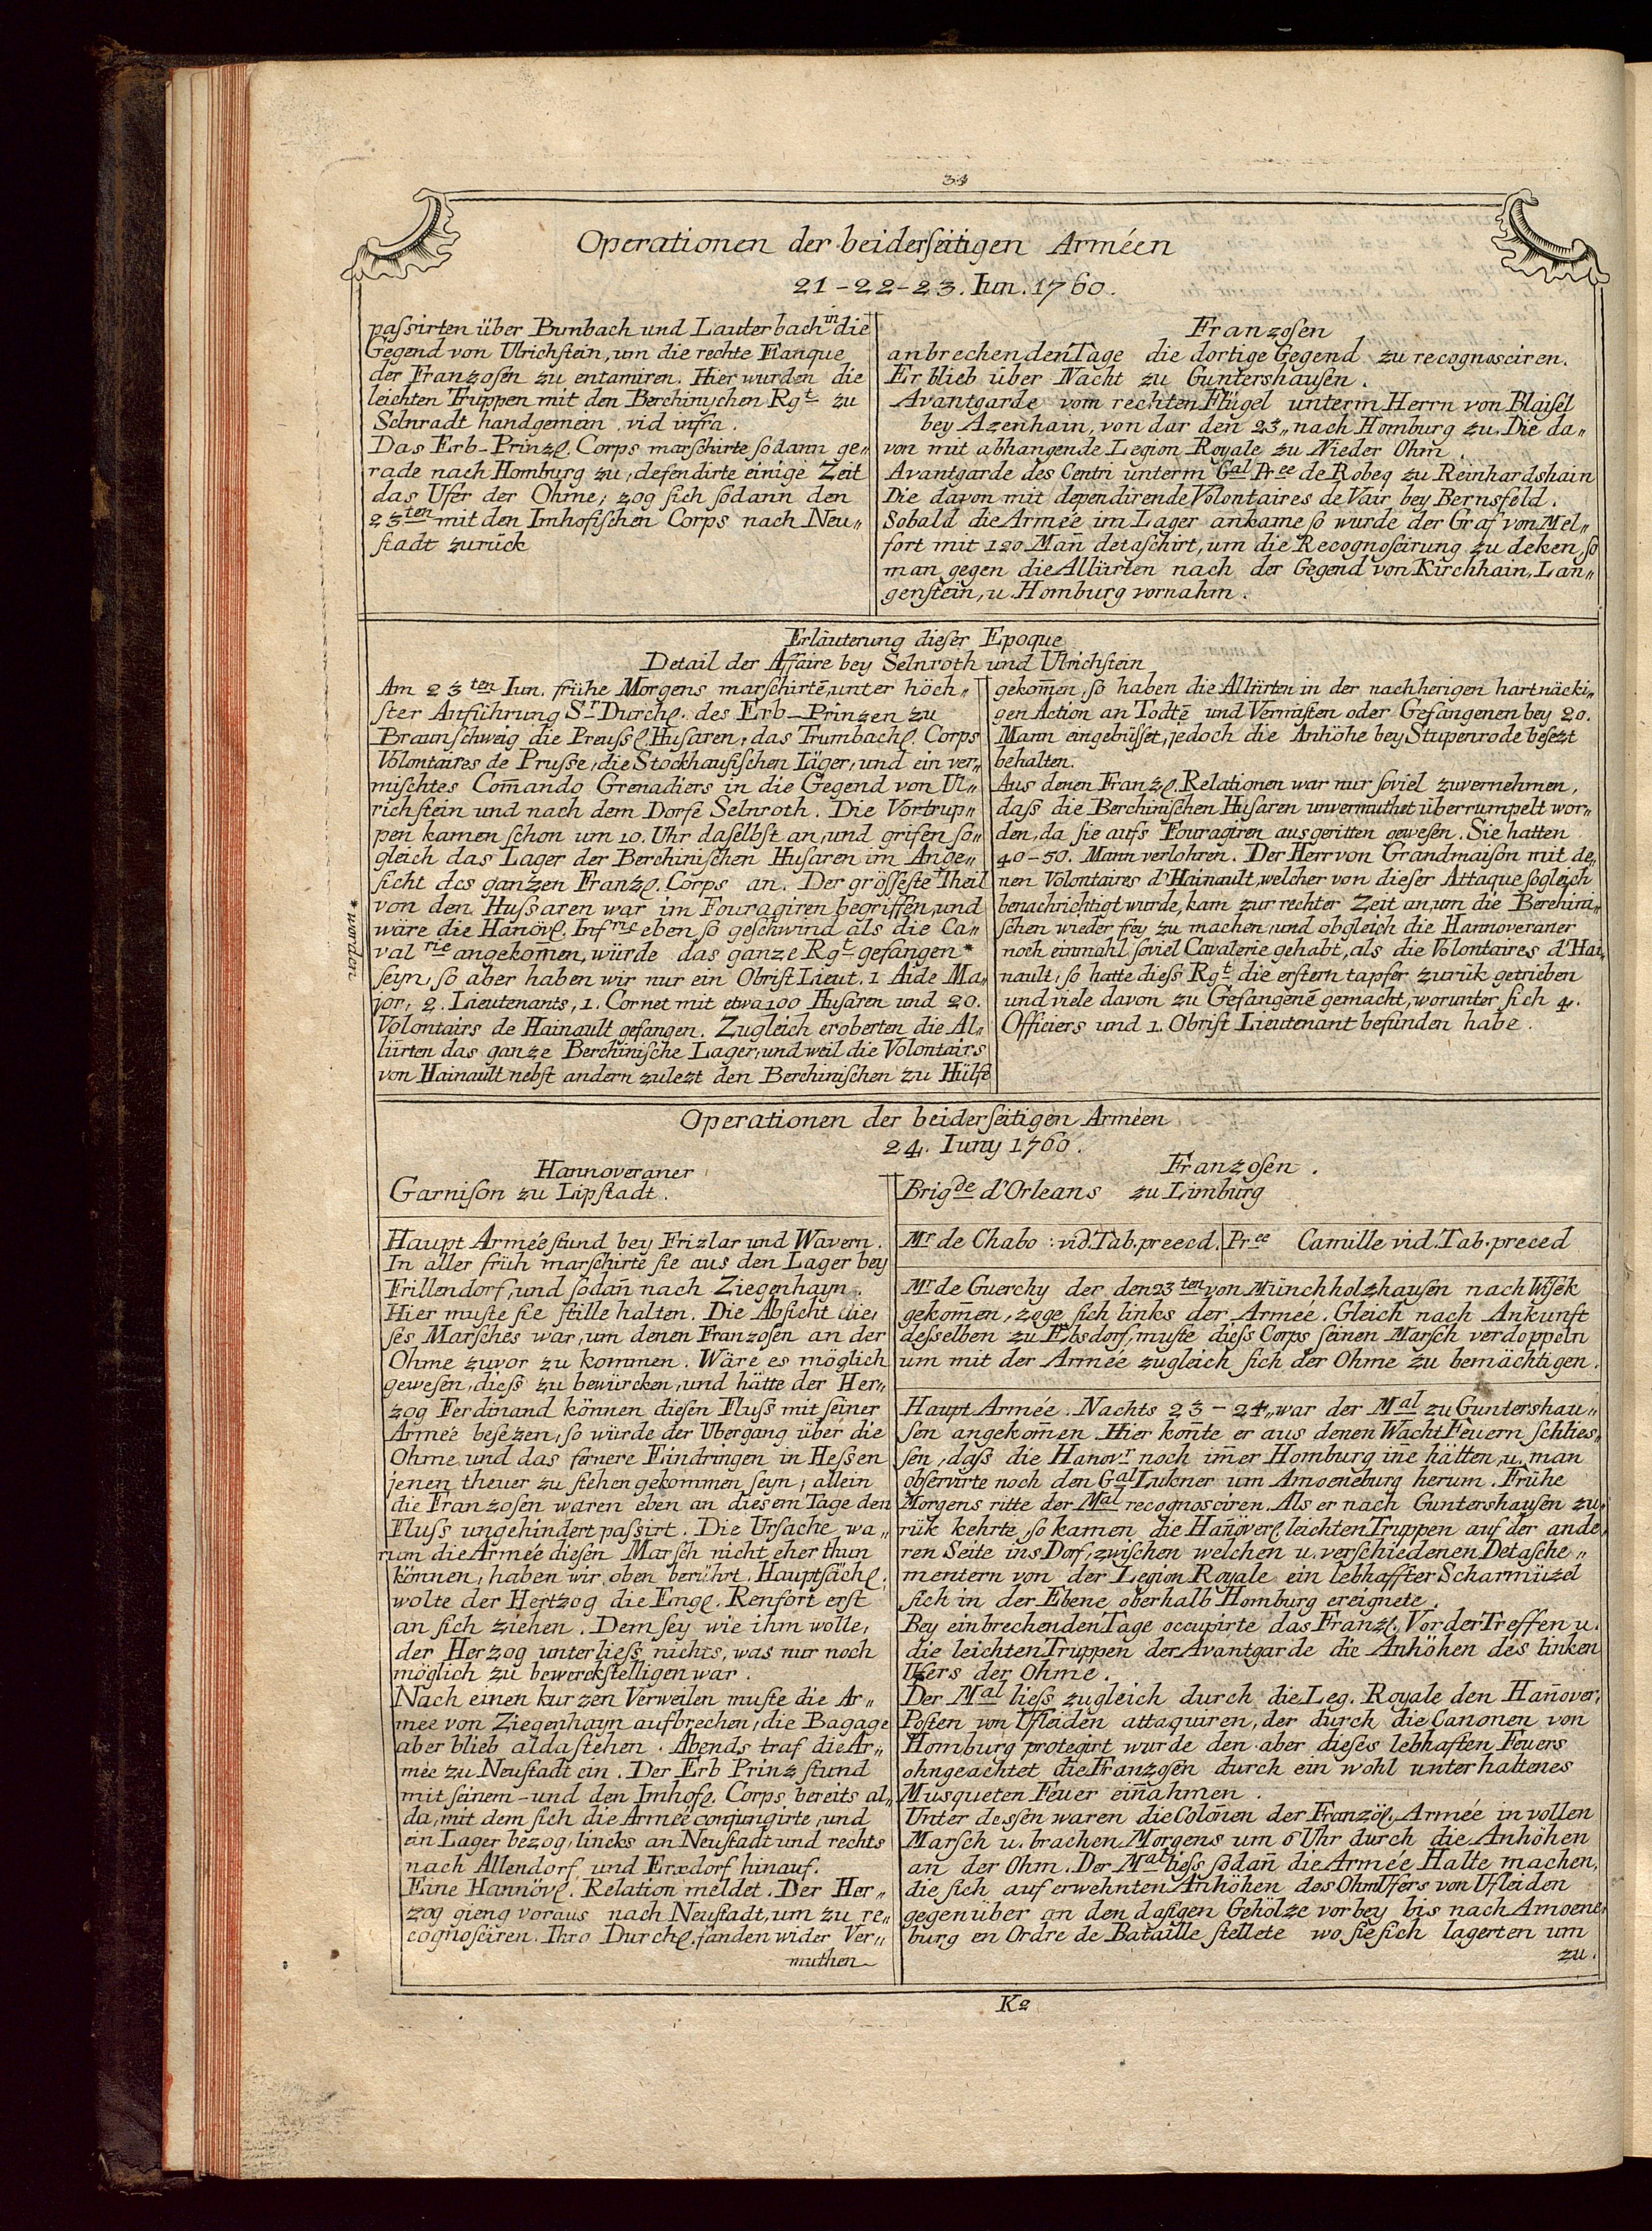 34
Operationen der beiderſeitigen Arméen
21-22-23. Iun. 1760.
paſsirten über Bimbach und Lauterbach in die
Gegend von Ulrichſtein, um die rechte Flanque
der Franzoſen zu entamiren. Hier wurden die
leichten Truppen mit den Berchinyſchen Rgt zu
Selnradt handgemein. vid infra.
Das Erb-Prinzl. Corps marſchirte ſodann ge„
rade nach Homburg zu, defendirte einige Zeit
das Ufer der Ohme, zog ſich ſodann den
23ten mit den Imhofiſchen Corps nach Neu„
ſtadt zurück
Franzoſen
anbrechenden Tage die dortige Gegend zu recognosciren.
Er blieb über Nacht zu Guntershauſen.
Avantgarde vom rechten Flügel unterm Herrn von Blaiſel
bey Azenhain, von dar den 23„ nach Homburg zu. Die da„
von mit abhangende Legion Royale zu Nieder Ohm.
Avantgarde des Centri unterm Gal Pr ce de Robeq zu Reinhardshain
Die davon mit dependirende Volontaires de Vair bey Bernsfeld.
Sobald die Armée im Lager ankame ſo wurde der Graf von Mel„
fort mit 120 Mañ detaſchirt, um die Recognoſcirung zu deken, ſo
man gegen die Allürten nach der Gegend von Kirchhain, Lan„
genſtein, u. Homburg vornahm.
Erläuterung dieſer Epoque
Detail der Affaire bey Selnroth und Ulrichſtein
Am 23ten Iun. frühe Morgens marſchirtē, unter höch„
ſter Anführung Sr Durchl. des Erb-Prinzen zu
Braunſchweig die Preuſsl. Huſaren, das Trumbachl. Corps
Volontaires de Pruſse, die Stockhauſiſchen Iäger, und ein ver„
miſchtes Com̄ando Grenadiers in die Gegend von Ul„
richſtein und nach dem Dorfe Selnroth. Die Vortrup„
pen kamen ſchon um 10. Uhr daſelbſt an, und grifen ſo„
gleich das Lager der Berchiniſchen Huſaren im Ange„
ſicht des ganzen Franzl. Corps an. Der gröſſeſte Theil
von den Huſsaren war im Fouragiren begriffen, und
wäre die Hanövl. Infrie eben ſo geſchwind als die Ca„
valrie angekom̄en, würde das ganze Rgt gefangen *
* worden
ſeyn, ſo aber haben wir nur ein Obriſt Lieut. 1 Aide Ma„
jor, 2. Lieutenants, 1. Cornet mit etwa 100 Huſaren und 20.
Volontairs de Hainault gefangen. Zugleich eroberten die Al„
lürten das ganze Berchiniſche Lager, und weil die Volontairs
von Hainault nebſt andern zulezt den Berchiniſchen zu Hülfe
gekom̄en, ſo haben die Allürten in der nachherigen hartnäcki„
gen Action an Todtē und Vermiſten oder Gefangenen bey 20.
Mann eingebüſſet, jedoch die Anhöhe bey Stupenrode beſezt
behalten.
Aus denen Franzl. Relationen war nur ſoviel zuvernehmen,
daſs die Berchiniſchen Huſaren unvermuthet überrumpelt wor„
den, da ſie aufs Fouragiren ausgeritten geweſen. Sie hatten
40-50. Mann verlohren. Der Herr von Grandmaiſon mit de„
nen Volontaires d'Hainault, welcher von dieſer Attaque ſogleich
benachrichtigt wurde, kam zur rechter Zeit an, um die Berchini„
ſchen wieder frey zu machen, und obgleich die Hannoveraner
noch einmahl ſoviel Cavalerie gehabt, als die Volontaires d'Hai„
nault, ſo hatte dieſs Rgt die erſtern tapfer zurük getrieben
und viele davon zu Gefangenē gemacht, worunter ſich 4.
Officiers und 1. Obriſt Lieutenant befunden habe.
Operationen der beiderſeitigen Arméen
24. Iuny 1760.
Hannoveraner
Garniſon zu Lipſtadt.
Haupt Armée ſtund bey Frizlar und Wavern.
In aller früh marſchirte ſie aus den Lager bey
Frillendorf, und ſodañ nach Ziegenhayn.
Hier muſte ſie ſtille halten. Die Abſicht die„
ſes Marſches war, um denen Franzoſen an der
Ohme zuvor zu kommen. Wäre es möglich
geweſen, dieſs zu bewürcken, und hätte der Her„
zog Ferdinand können dieſen Fluſs mit ſeiner
Armée beſezen, ſo würde der Ubergang über die
Ohme und das fernere Eindringen in Heſsen
jenen theuer zu ſtehen gekommen ſeyn, allein
die Franzoſen waren eben an dieſem Tage den
Fluſs ungehindert paſsirt. Die Urſache wa„
rum die Armée dieſen Marſch nicht eher thun
können, haben wir oben berührt. Hauptſächl.
wolte der Hertzog die Engl. Renfort erſt
an ſich ziehen. Dem ſey wie ihm wolle,
der Herzog unterlieſs nichts, was nur noch
möglich zu bewerckſtelligen war.
Nach einen kurzen Verweilen muſte die Ar„
mee von Ziegenhayn aufbrechen, die Bagage
aber blieb alda ſtehen. Abends traf die Ar„
mée zu Neuſtadt ein. Der Erb Prinz ſtund
mit ſeinem- und den Imhofl. Corps bereits al„
da, mit dem ſich die Armée conjungirte, und
ein Lager bezog, lincks an Neuſtadt und rechts
nach Allendorf und Erxdorf hinauf.
Eine Hannövl. Relation meldet. Der Her„
zog gieng voraus nach Neuſtadt, um zu re„
cognoſciren. Ihro Durchl. fanden wider Ver„
muthen
Franzoſen.
Brigde d'Orleans zu Limburg
Mr de Chabo : vid. Tab. preced.
Pr ce Camille vid. Tab. preced
Mr de Guerchy der den 23ten von Münchholzhauſen nach Wiſek
gekom̄en, zoge ſich links der Armée. Gleich nach Ankunft
deſselben zu Ebsdorf, muſte dieſs Corps ſeinen Marſch verdoppeln
um mit der Armée zugleich ſich der Ohme zu bemächtigen.
Haupt Armée. Nachts 23-24„ war der Mal zu Guntershau„
ſen angekom̄en Hier kon̄te er aus denen Wacht Feuern ſchlieſ„
ſen, daſs die Hanovr noch im̄er Homburg in̄e hätten, u. man
obſervirte noch den Gal Lukner um Amoeneburg herum. Frühe
Morgens ritte der Mal recognosciren. Als er nach Guntershauſen zu„
rük kehrte, ſo kamen die Han̄överl. leichten Truppen auf der ande„
ren Seite ins Dorf, zwiſchen welchen u. verſchiedenen Detaſche„
mentern von der Legion Royale ein lebhaffter Scharmüzel
ſich in der Ebene oberhalb Homburg ereignete.
Bey einbrechenden Tage occupirte das Franzl. Vorder Treffen u.
die leichten Truppen der Avantgarde die Anhöhen des linken
Ufers der Ohme.
Der Mal lieſs zugleich durch die Leg. Royale den Han̄over„
Poſten von Ufleiden attaquiren, der durch die Canonen von
Homburg protegirt wurde den aber dieſes lebhaften Feuers
ohngeachtet die Franzoſen durch ein wohl unterhaltenes
Musqueten Feuer ein̄ahmen.
Unter deſsen waren die Colon̄en der Franzöl. Armée in vollen
Marſch u. brachen Morgens um 6 Uhr durch die Anhöhen
an der Ohm. Der Mal lieſs ſodañ die Armée Halte machen,
die ſich auf erwehnten Anhöhen des Ohm Ufers von Ufleiden
gegenüber an den daſigen Gehölze vorbey bis nach Amoene„
burg en Ordre de Bataille ſtellete wo ſie ſich lagerten um
zu.
K2